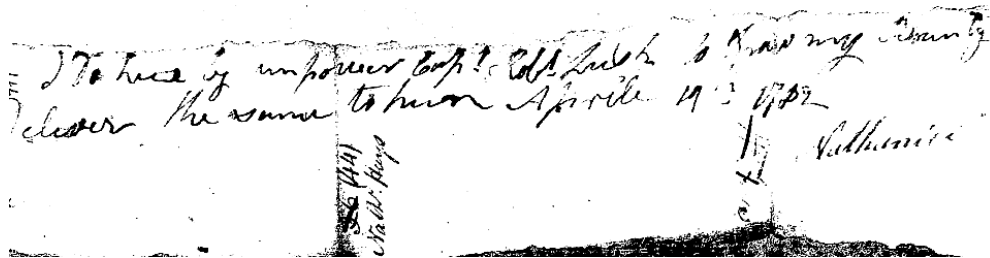 I Do hereby impower Capt. Robt. Lush to Draw my Bounty
deliver the same to him Aprile 19 1782
Nathaniel
(44)
Nathl. Hays